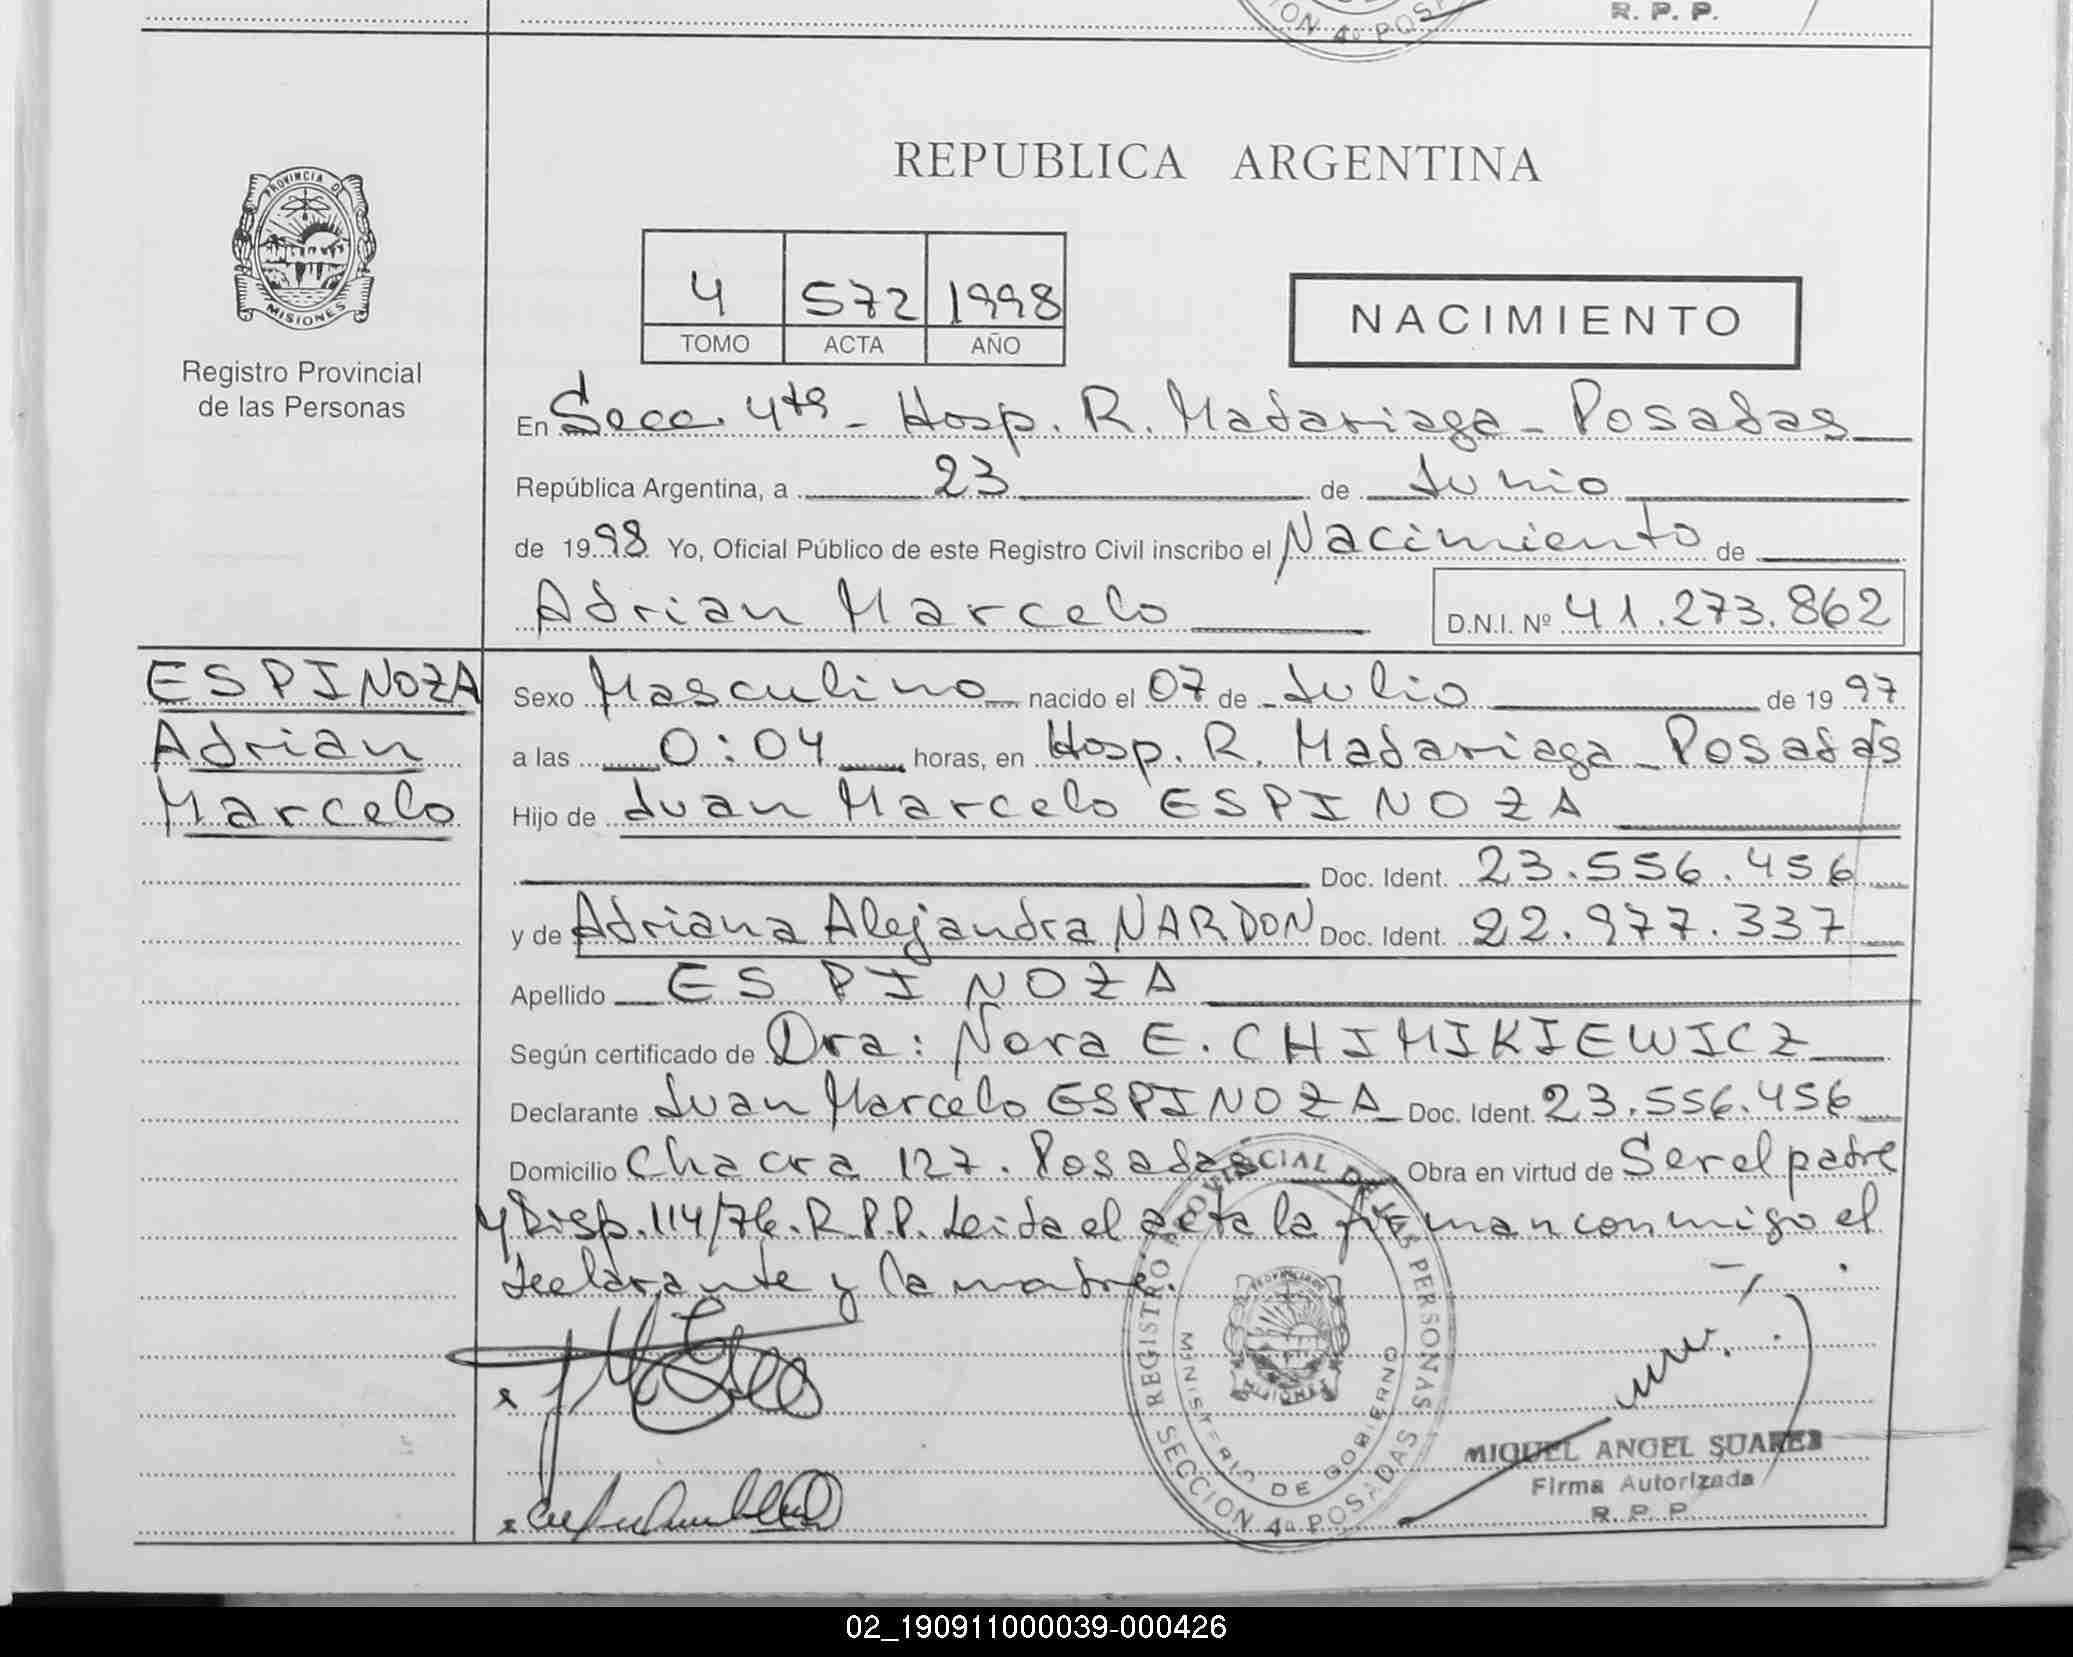 R. P. P.
ION 4º POS
REPUBLICA ARGENTINA
PROVINCIA D
MISIONES
Registro Provincial
de las Personas
4 572 1998
TOMO ACTA AÑO
NACIMIENTO
En Secc. 4ta - Hosp. R. Madariaga - Posadas
República Argentina, a 23 de Junio
de 1998 Yo, Oficial Público de este Registro Civil inscribo el Nacimiento de
Adrian Marcelo D.N.I. Nº 41.273.862
ESPINOZA
Adrian
Marcelo
Sexo Masculino nacido el 07 de Julio de 1997
a las 0:04 horas, en Hosp. R. Madariaga - Posadas
Hijo de Juan Marcelo ESPINOZA
Doc. Ident. 23.556.456
y de Adriana Alejandra NARDON Doc. Ident. 22.977.337
Apellido ESPINOZA
Según certificado de Dra: Nora E. CHIMIKIEWICZ
Declarante Juan Marcelo ESPINOZA Doc. Ident. 23.556.456
Domicilio Chacra 127. Posadas Obra en virtud de Ser el padre
y Disp. 114/76. R.P.P. Leida el acta la firman conmigo el
declarante y la madre.
REGISTRO PROVINCIAL DE LAS PERSONAS
MINISTERIO DE GOBIERNO
SECCION 4ª POSADAS
MIGUEL ANGEL SUAREZ
Firma Autorizada
R. P. P.
02_190911000039-000426